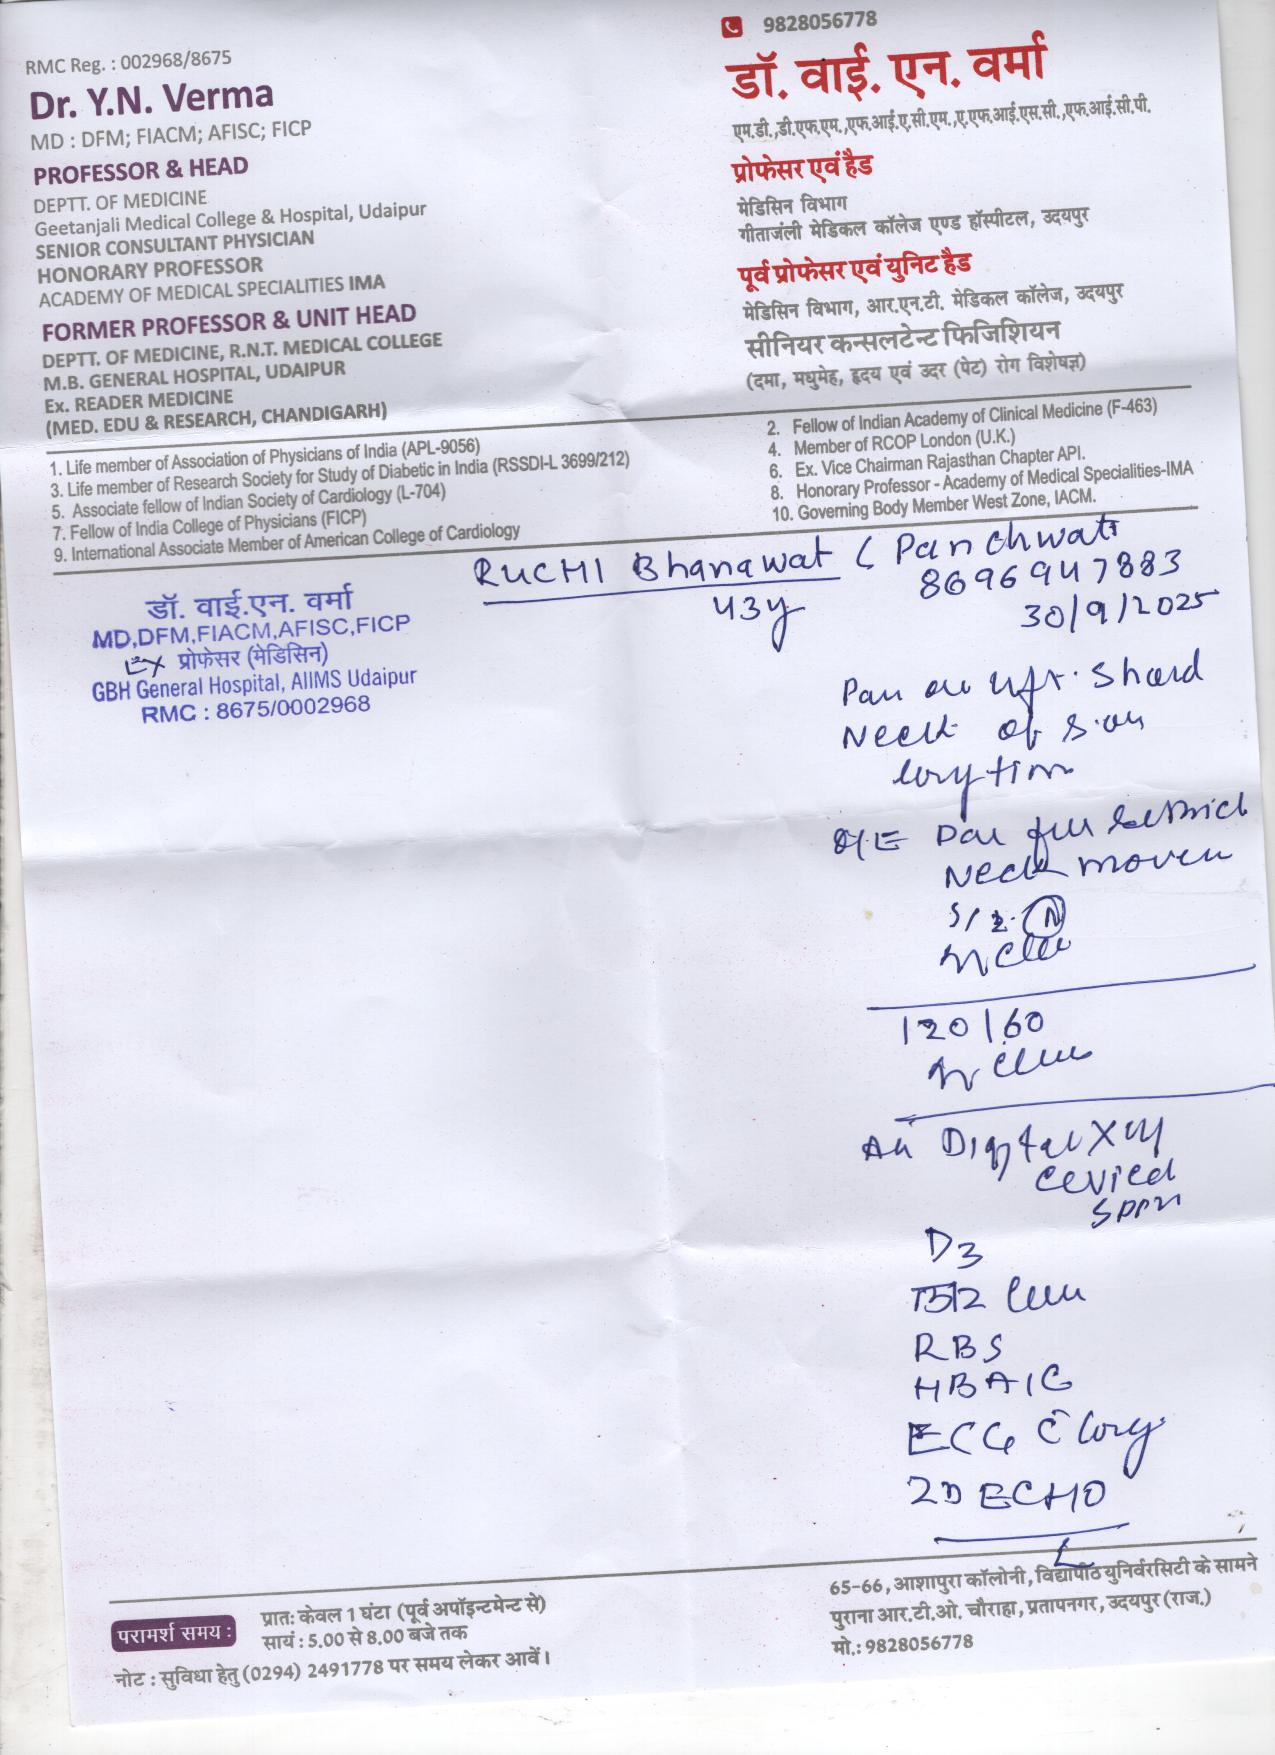 RMC Reg. : 002968/8675
Dr. Y.N. Verma
MD : DFM; FIACM; AFISC; FICP
PROFESSOR & HEAD
DEPTT. OF MEDICINE
Geetanjali Medical College & Hospital, Udaipur
SENIOR CONSULTANT PHYSICIAN
HONORARY PROFESSOR
ACADEMY OF MEDICAL SPECIALITIES IMA
FORMER PROFESSOR & UNIT HEAD
DEPTT. OF MEDICINE, R.N.T. MEDICAL COLLEGE
M.B. GENERAL HOSPITAL, UDAIPUR
Ex. READER MEDICINE
(MED. EDU & RESEARCH, CHANDIGARH)
9828056778
डॉ. वाई. एन. वर्मा
एम.डी.,डी.एफ.एम.,एफ.आई.ए.सी.एम.,ए.एफ.आई.एस.सी.,एफ.आई.सी.पी.
प्रोफेसर एवं हैड
मेडिसिन विभाग
गीताजंली मेडिकल कॉलेज एण्ड हॉस्पीटल, उदयपुर
पूर्व प्रोफेसर एवं युनिट हैड
मेडिसिन विभाग, आर.एन.टी. मेडिकल कॉलेज, उदयपुर
सीनियर कन्सलटेन्ट फिजिशियन
(दमा, मधुमेह, हृदय एवं उदर (पेट) रोग विशेषज्ञ)
1. Life member of Association of Physicians of India (APL-9056)
2. Fellow of Indian Academy of Clinical Medicine (F-463)
3. Life member of Research Society for Study of Diabetic in India (RSSDI-L 3699/212)
4. Member of RCOP London (U.K.)
5. Associate fellow of Indian Society of Cardiology (L-704)
6. Ex. Vice Chairman Rajasthan Chapter API.
7. Fellow of India College of Physicians (FICP)
8. Honorary Professor - Academy of Medical Specialities-IMA
9. International Associate Member of American College of Cardiology
10. Governing Body Member West Zone, IACM.
RUCHI Bhanawat ( Panchwati
8696947883
43y
30/9/2025
डॉ. वाई.एन. वर्मा
MD,DFM,FIACM,AFISC,FICP
Ex प्रोफेसर (मेडिसिन)
GBH General Hospital, AIIMS Udaipur
RMC : 8675/0002968
Neck of
O/E
Neck
S/2 N
120/60
Digital
D3
B12
RBS
HBA1C
ECG c̄ long
2D ECHO
परामर्श समय :
प्रातः केवल 1 घंटा (पूर्व अपॉइन्टमेन्ट से)
सायं : 5.00 से 8.00 बजे तक
नोट : सुविधा हेतु (0294) 2491778 पर समय लेकर आवें।
65-66, आशापुरा कॉलोनी, विद्यापीठ युनिर्वरसिटी के सामने
पुराना आर.टी.ओ. चौराहा, प्रतापनगर, उदयपुर (राज.)
मो.: 9828056778